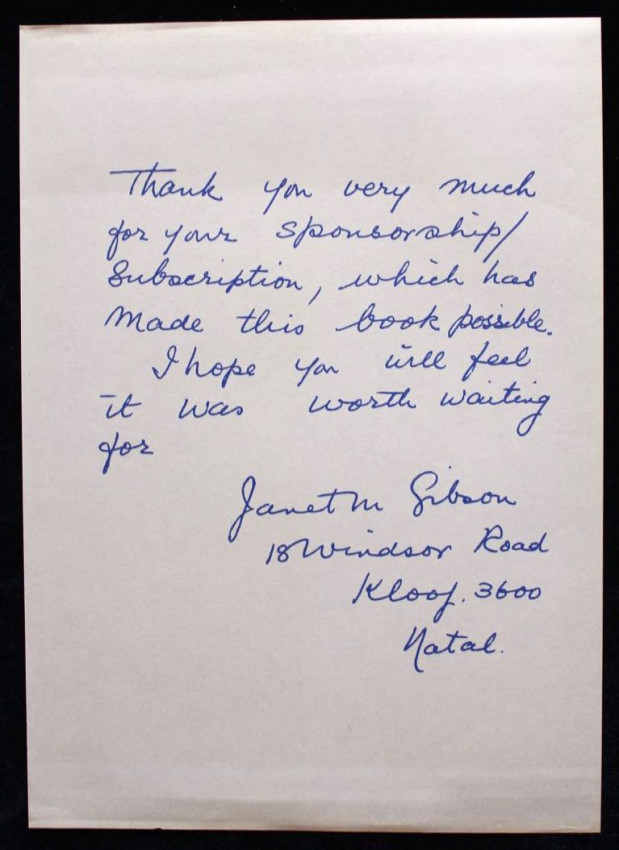 Thank you very much
for your sponsorship/
Subscription, which has
made this book possible.
I hope you will feel
it was worth waiting
for
Janet M Gibson
18 Windsor Road
Kloof. 3600
Natal.